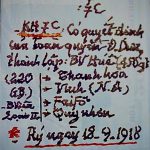 :7C
KH7C Có quyết định
của toàn quyền Đ. Dương
thành lập: BV Huế (450g)
(220 → Thanh hóa
G.B) → Vinh (N.A)
→ Faifo
→ Quy nhơn
Ký ngày 18.9.1918